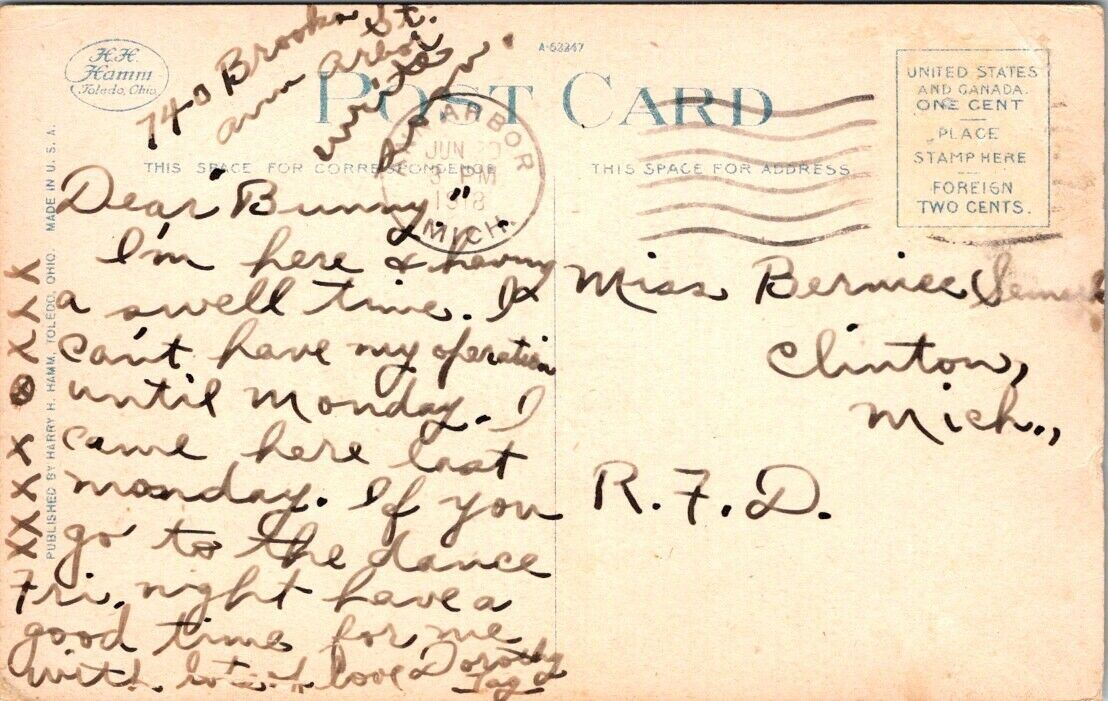 H.H.
Hamm
Toledo, Ohio
A-52247
740 Brooks St.
Ann Arbor
write
POST CARD
ANN ARBOR
JUN
3 PM
1918
MICH.
UNITED STATES
AND CANADA
ONE CENT
PLACE
STAMP HERE
FOREIGN
TWO CENTS.
THIS SPACE FOR CORRESPONDENCE
THIS SPACE FOR ADDRESS
PUBLISHED BY HARRY H. HAMM, TOLEDO, OHIO. MADE IN U. S. A.
Dear "Bunny"
I'm here & having
a swell time. I
can't have my operation
until Monday. I
came here last
monday. If you
go to the dance
Fri. night have a
good time for me
with lots of love Dorothy
XXXX X ⊗ X X X X
Miss Berniece
Clinton,
Mich.,
R.F.D.